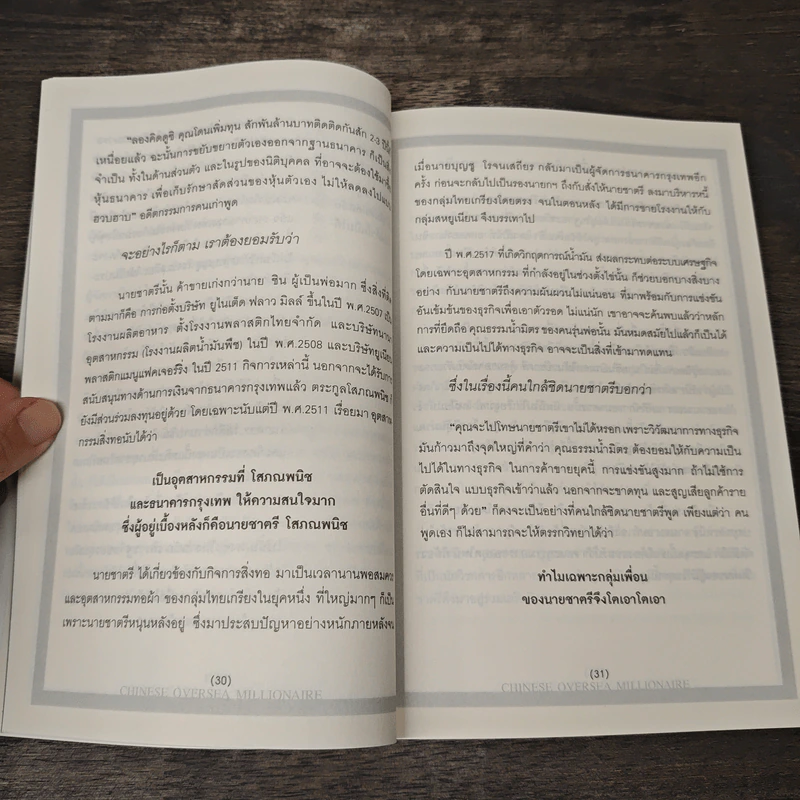 "ลองคิดดูซิ คุณโดนเพิ่มทุน สักพันล้านบาทติดติดกันสัก 2-3 ปีก็
เหนื่อยแล้ว ฉะนั้นการขยับขยายตัวเองออกจากฐานธนาคาร ก็เป็น
จำเป็น ทั้งในด้านส่วนตัว และในรูปของนิติบุคคล ที่อาจจะต้องใช้
หุ้นธนาคาร เพื่อเก็บรักษาสัดส่วนของหุ้นตัวเอง ไม่ให้ลดลงไป
ฮวบฮาบ" อดีตกรรมการคนเก่าพูด
จะอย่างไรก็ตาม เราต้องยอมรับว่า
นายชาตรีนั้น ค้าขายเก่งกว่านาย ชิน ผู้เป็นพ่อมาก ซึ่งสิ่งที่
ตามมาก็คือ การก่อตั้งบริษัท ยูไนเต็ด ฟลาว มิลล์ ขึ้นในปี พ.ศ.2507
โรงงานผลิตอาหาร ตั้งโรงงานพลาสติกไทยจำกัด และบริษัท
อุตสาหกรรม (โรงงานผลิตน้ำมันพืช) ในปี พ.ศ.2508 และบริษัท
พลาสติกแมนูแฟคเจอร์ริ่ง ในปี 2511 กิจการเหล่านี้ นอกจากจะได้รับ
สนับสนุนทางด้านการเงินจากธนาคารกรุงเทพแล้ว ตระกูลโสภณพนิช
ยังมีส่วนร่วมลงทุนอยู่ด้วย โดยเฉพาะนับแต่ปี พ.ศ.2511 เรื่อยมา
กรรมสิ่งทอนับได้ว่า
เป็นอุตสาหกรรมที่ โสภณพนิช
และธนาคารกรุงเทพ ให้ความสนใจมาก
ซึ่งผู้อยู่เบื้องหลังก็คือนายชาตรี โสภณพนิช
นายชาตรี ได้เกี่ยวข้องกับกิจการสิ่งทอ มาเป็นเวลานานพอสมควร
และอุตสาหกรรมทอผ้า ของกลุ่มไทยเกรียงในยุคหนึ่ง ที่ใหญ่มากๆ ก็เป็น
เพราะนายชาตรีหนุนหลังอยู่ ซึ่งมาประสบปัญหาอย่างหนักภายหลัง
(30)
CHINESE OVERSEA MILLIONAIRE
เมื่อนายบุญชู โรจนเสถียร กลับมาเป็นผู้จัดการธนาคารกรุงเทพอีก
ครั้ง ก่อนจะกลับไปเป็นรองนายกฯ ถึงกับสั่งให้นายชาตรี ลงมาบริหารหนี้
ของกลุ่มไทยเกรียงโดยตรง จนในตอนหลัง ได้มีการขายโรงงานให้กับ
กลุ่มสหยูเนียน จึงบรรเทาไป
ปี พ.ศ.2517 ที่เกิดวิกฤตการณ์น้ำมัน ส่งผลกระทบต่อระบบเศรษฐกิจ
โดยเฉพาะอุตสาหกรรม ที่กำลังอยู่ในช่วงตั้งไข่นั้น ก็ช่วยบอกบางสิ่งบาง
อย่าง กับนายชาตรีถึงความผันผวนไม่แน่นอน ที่มาพร้อมกับการแข่งขัน
อันเข้มข้นของธุรกิจเพื่อเอาตัวรอด ไม่แน่นัก เขาอาจจะค้นพบแล้วว่าหลัก
การที่ยึดถือ คุณธรรมน้ำมิตร ของคนรุ่นพ่อนั้น มันหมดสมัยไปแล้วก็เป็นได้
และความเป็นไปได้ทางธุรกิจ อาจจะเป็นสิ่งที่เข้ามาทดแทน
ซึ่งในเรื่องนี้คนใกล้ชิดนายชาตรีบอกว่า
"คุณจะไปโทษนายชาตรีเขาไม่ได้หรอก เพราะวิวัฒนาการทางธุรกิจ
มันก้าวมาถึงจุดใหญ่ที่คำว่า คุณธรรมน้ำมิตร ต้องยอมให้กับความเป็น
ไปได้ในทางธุรกิจ ในการค้าขายยุคนี้ การแข่งขันสูงมาก ถ้าไม่ใช้การ
ตัดสินใจ แบบธุรกิจเข้าว่าแล้ว นอกจากจะขาดทุน และสูญเสียลูกค้าราย
อื่นที่ดีๆ ด้วย" ก็คงจะเป็นอย่างที่คนใกล้ชิดนายชาตรีพูด เพียงแต่ว่า คน
พูดเอง ก็ไม่สามารถจะให้ตรรกวิทยาได้ว่า
ทำไมเฉพาะกลุ่มเพื่อน
ของนายชาตรีจึงโตเอาโตเอา
(31)
CHINESE OVERSEA MILLIONAIRE